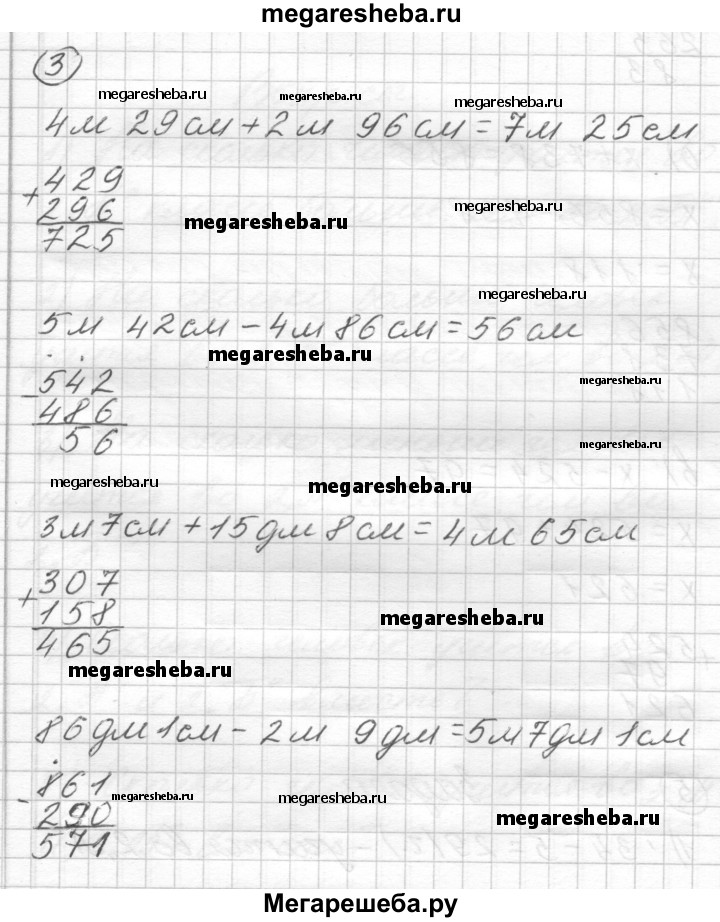 megaresheba.ru
3
megaresheba.ru megaresheba.ru megaresheba.ru
4м 29см+2м 96см=7м 25см
+429
296
725
megaresheba.ru
megaresheba.ru
megaresheba.ru
5м 42см-4м86см=56см
megaresheba.ru
-542
486
56
megaresheba.ru
megaresheba.ru
megaresheba.ru megaresheba.ru
3м7см+15дм8см=4м65см
+307
158
465
megaresheba.ru
megaresheba.ru
86дм1см-2м 9дм=5м7дм1см
-861
290
571
megaresheba.ru megaresheba.ru
megaresheba.ru
Мегарешеба.ру